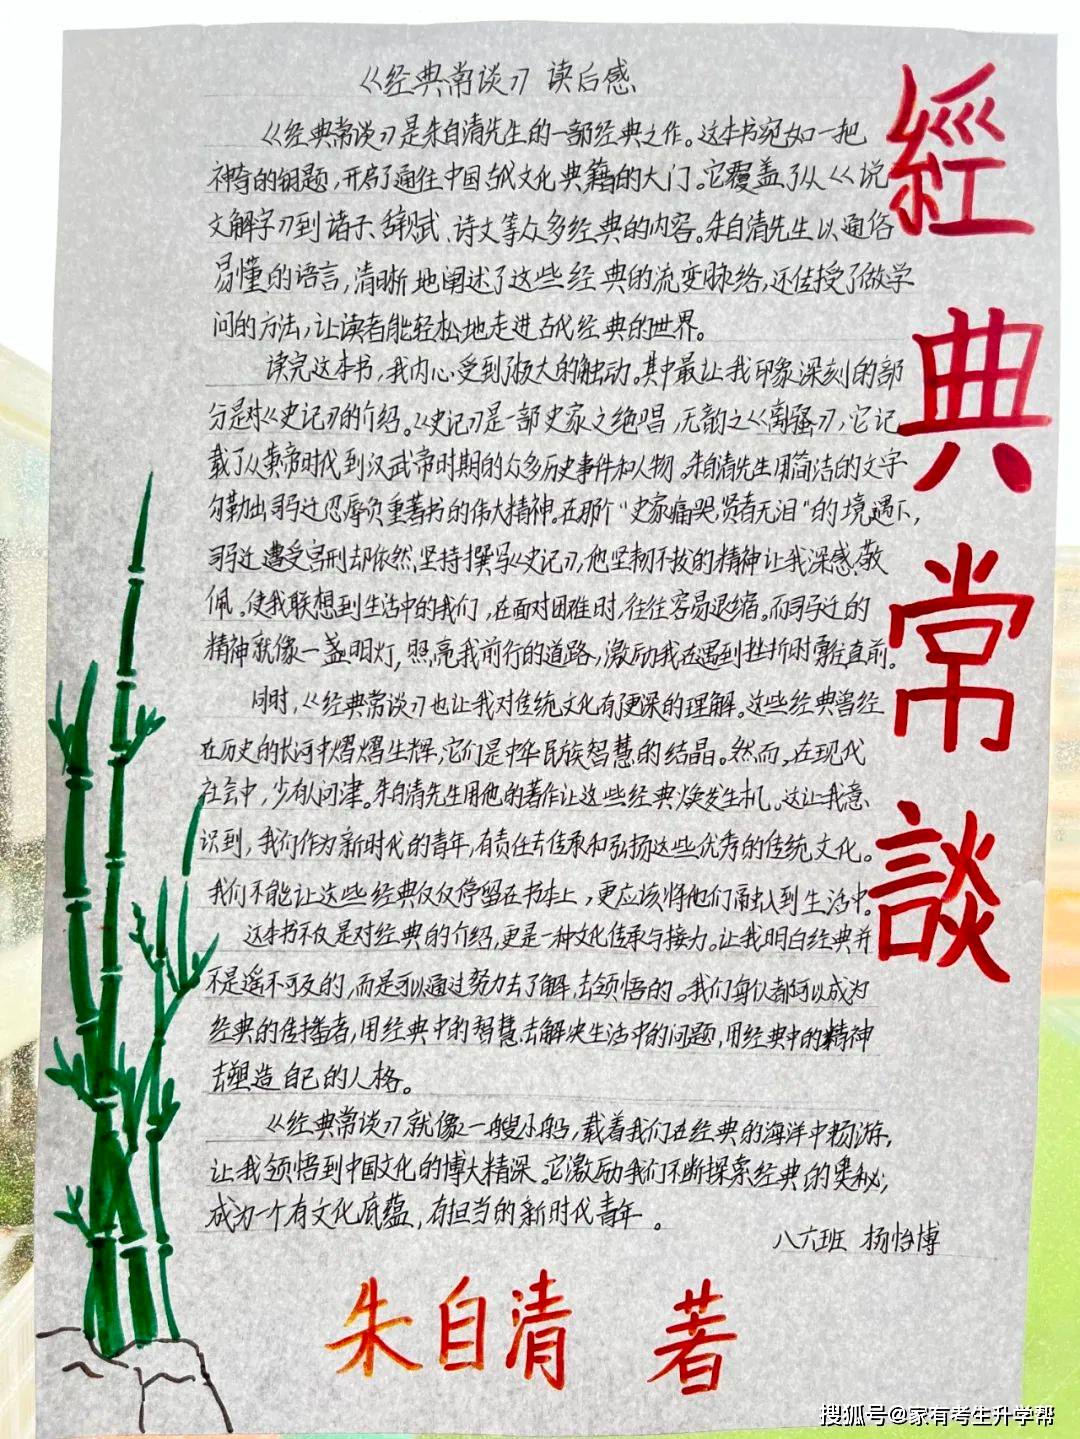 《经典常谈》读后感
《经典常谈》是朱自清先生的一部经典之作。这本书宛如一把
神奇的钥题，开启了通往中国古代文化典籍的大门。它覆盖了从《说
文解字》到诸子、辞赋、诗文等众多经典的内容。朱自清先生以通俗
易懂的语言，清晰地阐述了这些经典的流变脉络，还传授了做学
问的方法，让读者能轻松地走进古代经典的世界。
读完这本书，我内心受到了极大的触动。其中最让我印象深刻的部
分是对《史记》的介绍。《史记》是一部史家之绝唱，无韵之《离骚》，它记
载了从黄帝时代到汉武帝时期的众多历史事件和人物。朱自清先生用简洁的文字
勾勒出司马迁忍辱负重著书的伟大精神。在那个“史家痛哭，贤者无泪”的境遇下，
司马迁遭受宫刑却依然坚持撰写《史记》，他坚韧不拔的精神让我深感敬
佩。使我联想到生活中的我们，在面对困难时，往往容易退缩。而司马迁的
精神就像一盏明灯，照亮我前行的道路，激励我在遇到挫折时勇往直前。
同时，《经典常谈》也让我对传统文化有了更深的理解。这些经典曾经
在历史的长河中熠熠生辉，它们是中华民族智慧的结晶。然而，在现代
社会中，少有人问津。朱自清先生用他的著作让这些经典焕发生机。这让我意
识到，我们作为新时代的青年，有责任去传承和弘扬这些优秀的传统文化。
我们不能让这些经典仅仅停留在书本上，更应该将他们融入到生活中。
这本书不仅是对经典的介绍，更是一种文化传承与接力。让我明白经典并
不是遥不可及的，而是可以通过努力去了解，去领悟的。我们每个都可以成为
经典的传播者，用经典中的智慧去解决生活中的问题，用经典中的精神
去塑造自己的人格。
《经典常谈》就像一艘小船，载着我们在经典的海洋中畅游，
让我领悟到中国文化的博大精深。它激励我们不断探索经典的奥秘，
成为一个有文化底蕴，有担当的新时代青年。
八六班 杨怡博
經典常談
朱自清 著
搜狐号@家有考生升学帮